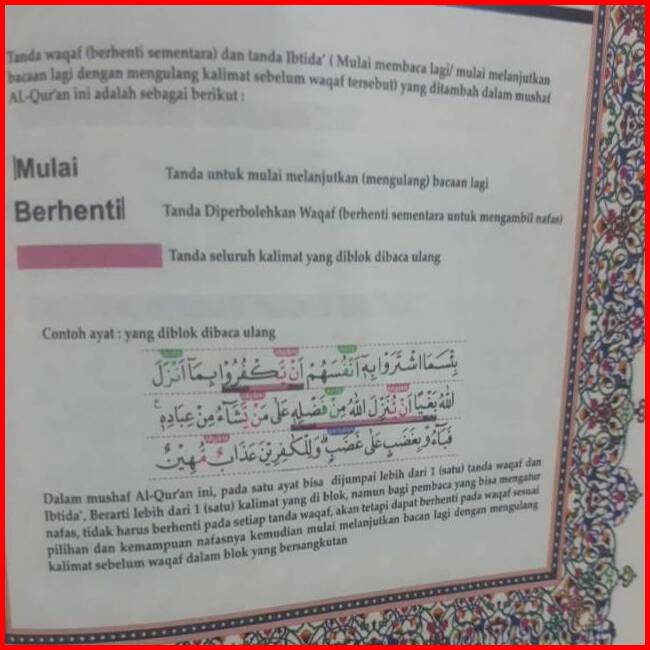 Tanda waqaf (berhenti sementara) dan tanda Ibtida' ( Mulai membaca lagi/ mulai melanjutkan
bacaan lagi dengan mengulang kalimat sebelum waqaf tersebut) yang ditambah dalam mushaf
AL-Qur'an ini adalah sebagai berikut :
|Mulai
Tanda untuk mulai melanjutkan (mengulang) bacaan lagi
Berhenti|
Tanda Diperbolehkan Waqaf (berhenti sementara untuk mengambil nafas)
Tanda seluruh kalimat yang diblok dibaca ulang
Contoh ayat : yang diblok dibaca ulang
بِئْسَمَا اشْتَرَوْا بِهٖٓ اَنْفُسَهُمْ اَنْ يَّكْفُرُوْا بِمَآ اَنْزَلَ
اللّٰهُ بَغْيًا اَنْ يُّنَزِّلَ اللّٰهُ مِنْ فَضْلِهٖ عَلٰى مَنْ يَّشَاۤءُ مِنْ عِبَادِهٖ ۚ
فَبَاۤءُوْ بِغَضَبٍ عَلٰى غَضَبٍۗ وَلِلْكٰفِرِيْنَ عَذَابٌ مُّهِيْنٌ
Dalam mushaf Al-Qur'an ini, pada satu ayat bisa dijumpai lebih dari 1 (satu) tanda waqaf dan
Ibtida', Berarti lebih dari 1 (satu) kalimat yang di blok, namun bagi pembaca yang bisa mengatur
nafas, tidak harus berhenti pada setiap tanda waqaf, akan tetapi dapat berhenti pada waqaf sesuai
pilihan dan kemampuan nafasnya kemudian mulai melanjutkan bacan lagi dengan mengulang
kalimat sebelum waqaf dalam blok yang bersangkutan